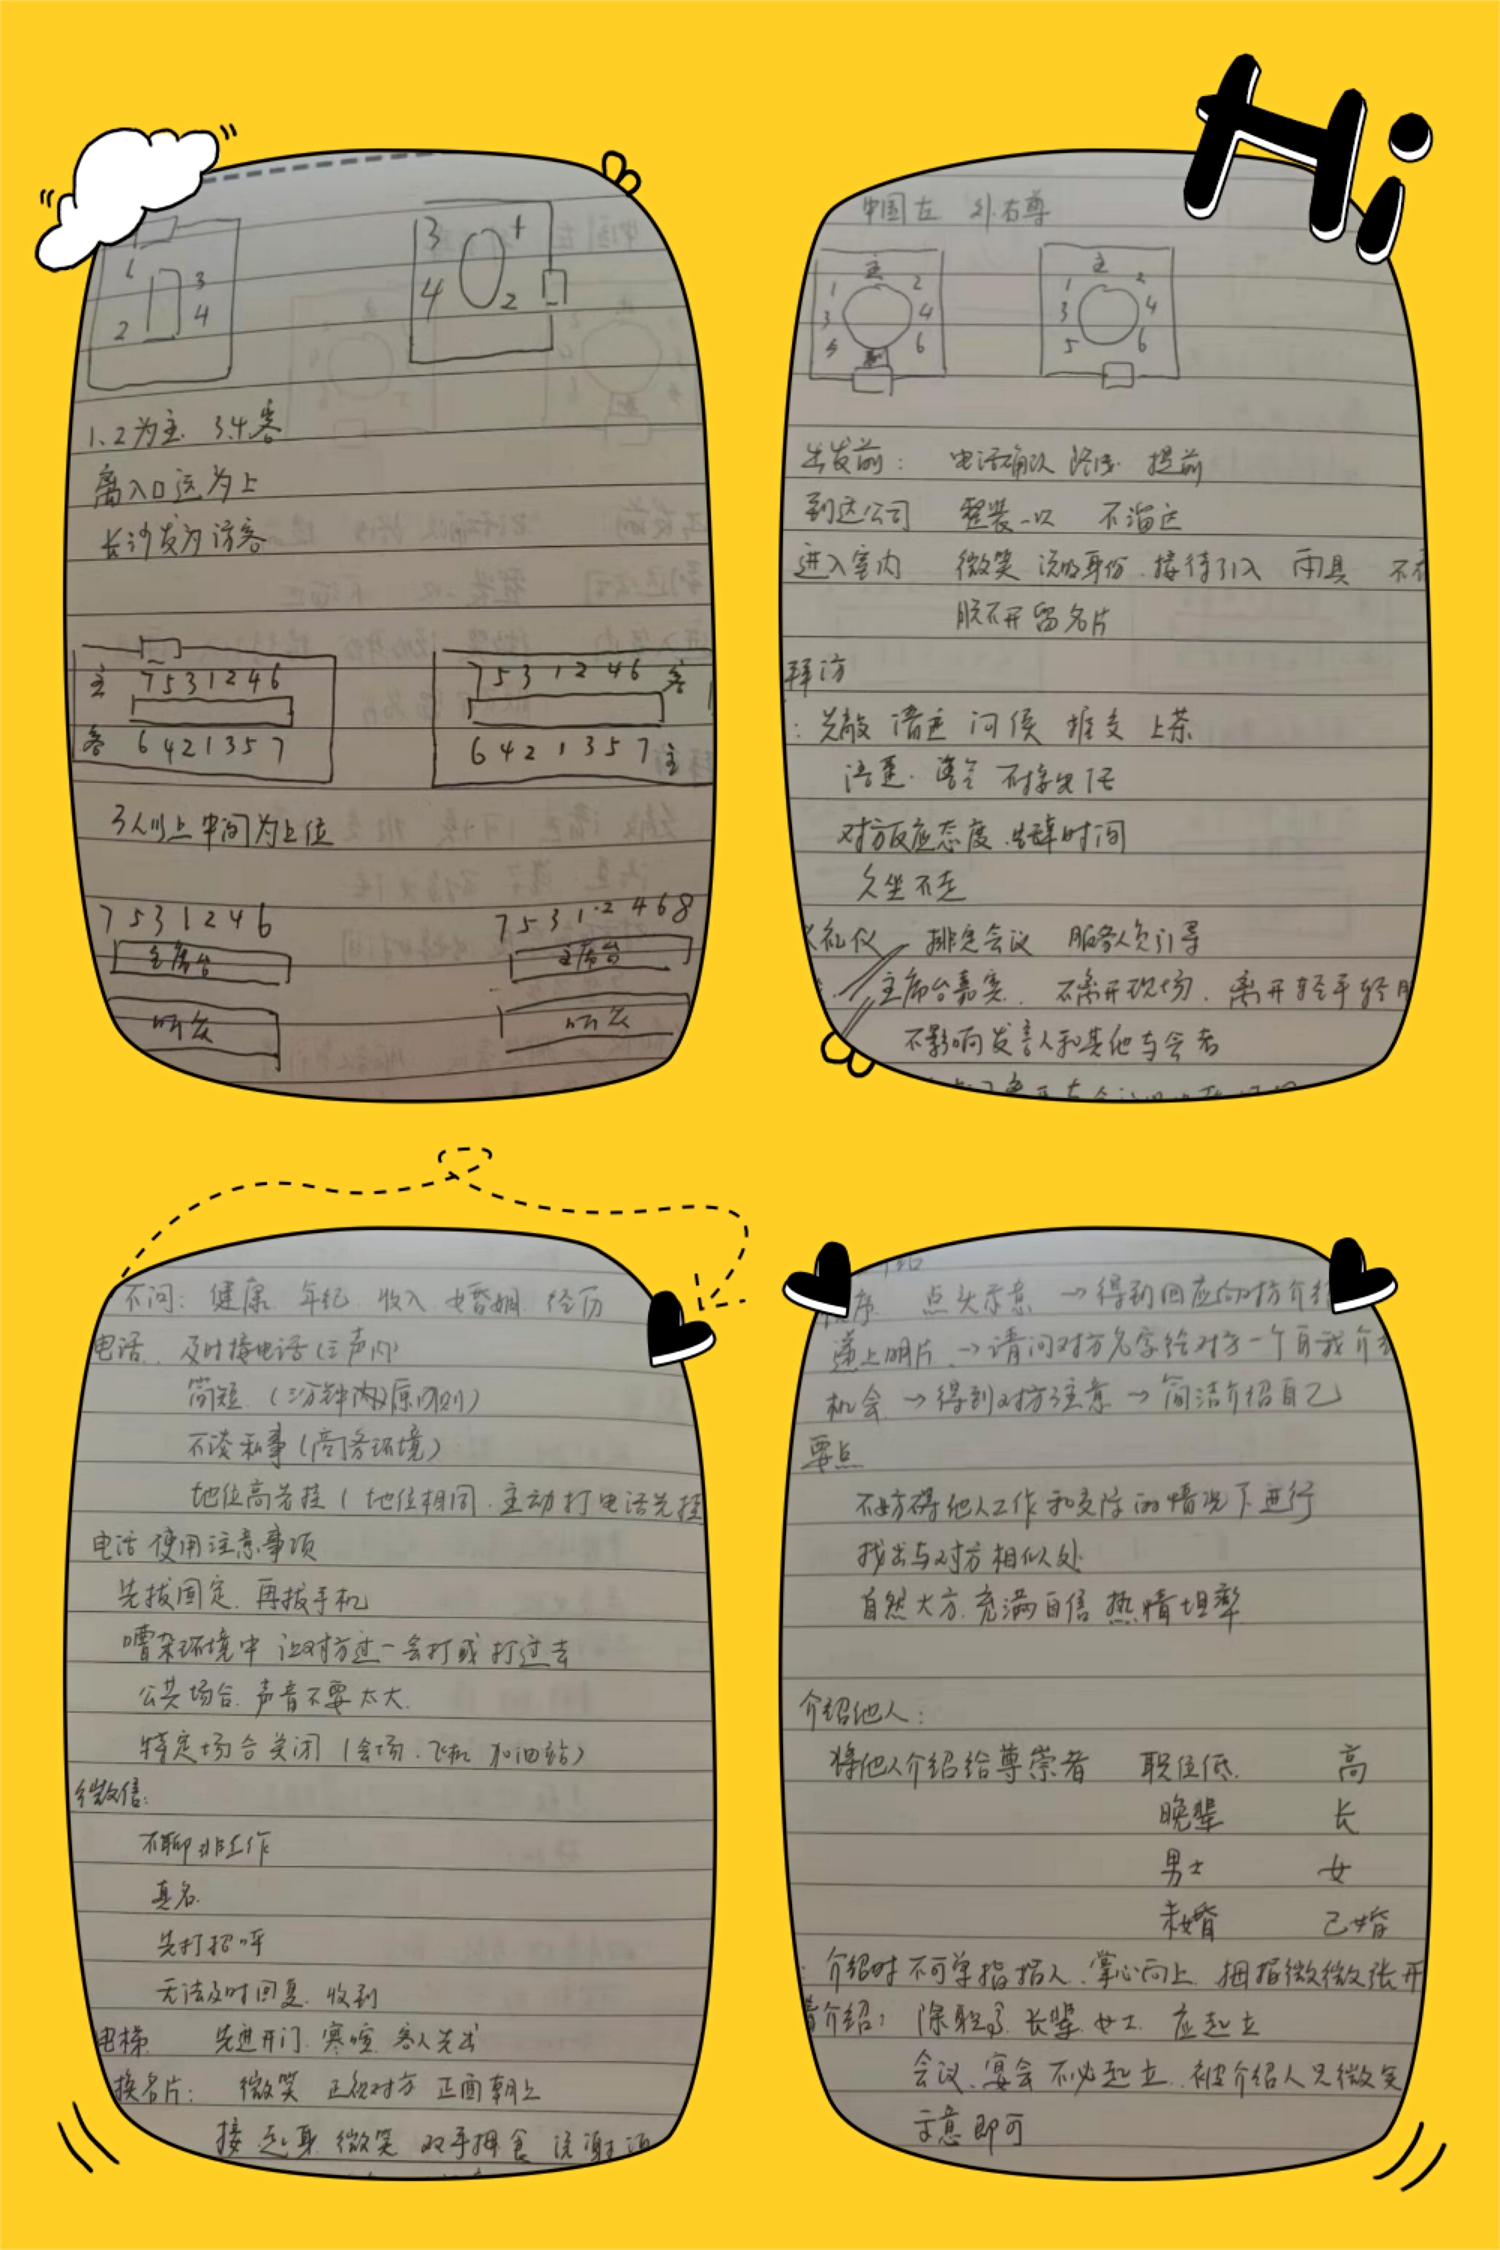 Hi
1 3
2 4
3 1
4 2
1、2为主 3.4客
离入口远为上
长沙发为访客
主 7 5 3 1 2 4 6
客 6 4 2 1 3 5 7
7 5 3 1 2 4 6 客
6 4 2 1 3 5 7 主
3人以上中间为上位
7 5 3 1 2 4 6
主席台
听众
7 5 3 1 2 4 6 8
主席台
听众
中国左 外右尊
主
1 2
3 4
5 6
主
1 2
3 4
5 6
出发前: 电话确认 路线 提前
到达公司 整装 不溜达
进入室内 微笑 说明身份 接待引入 雨具
脱不开留名片
拜访
: 先敲 请进 问候 上茶
对方反应态度 告辞时间
久坐不走
礼仪 排定会议 服务人员引导
主席台嘉宾 不离开现场、离开轻手轻
不影响发言人和其他与会者
不问: 健康 年纪 收入 婚姻 经历
电话、及时接电话(三声内)
简短 (三分钟内原则)
不谈私事(商务环境)
地位高者挂( 地位相同、主动打电话先挂
电话使用注意事项
先拨固定、再拨手机
嘈杂环境中 让对方过一会打或打过去
公共场合、声音不要太大.
特定场合关闭(会场、飞机 加油站)
微信:
不聊非工作
真名
先打招呼
无法及时回复、收到
电梯 先进开门、寒喧 客人先出
换名片: 微笑 正视对方 正面朝上
接 起身 微笑 双手拇食
序 点头示意 →得到回应向对方介绍
递上明片 →请问对方名字给对方一个自我介绍
机会 →得到对方注意 →简洁介绍自己
要点
不妨碍他人工作和交际的情况下进行
找出与对方相似处
自然大方、充满自信 热情坦率
介绍他人:
将他人介绍给尊崇者 职位低 高
晚辈 长
男士 女
未婚 已婚
: 介绍时 不可单指指人、掌心向上、拇指微微张开
介绍: 除职高、长辈、女士、应起立
会议、宴会不必起立、被介绍人只微笑
示意即可